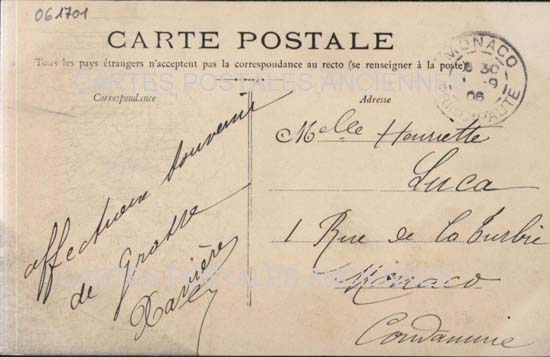 061701
CARTE POSTALE
Tous les pays étrangers n'acceptent pas la correspondance au recto (se renseigner à la poste)
CARTES POSTALES ANCIENNES
MONACO
8 30
1 - 9
06
PRINCIPAUTÉ
Correspondance
Adresse
affectueux souvenir
de Grasse
Xavière
Melle Henriette
Luca
1 Rue de la Turbie
Monaco
Condamine
CARTES POSTALES ANCIENNES